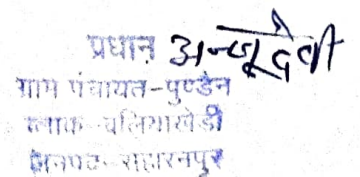 प्रधान अन्जू देवी
ग्राम पंचायत-पुण्डैन
ब्लाक-बलियाखेडी
जनपद-सहारनपुर